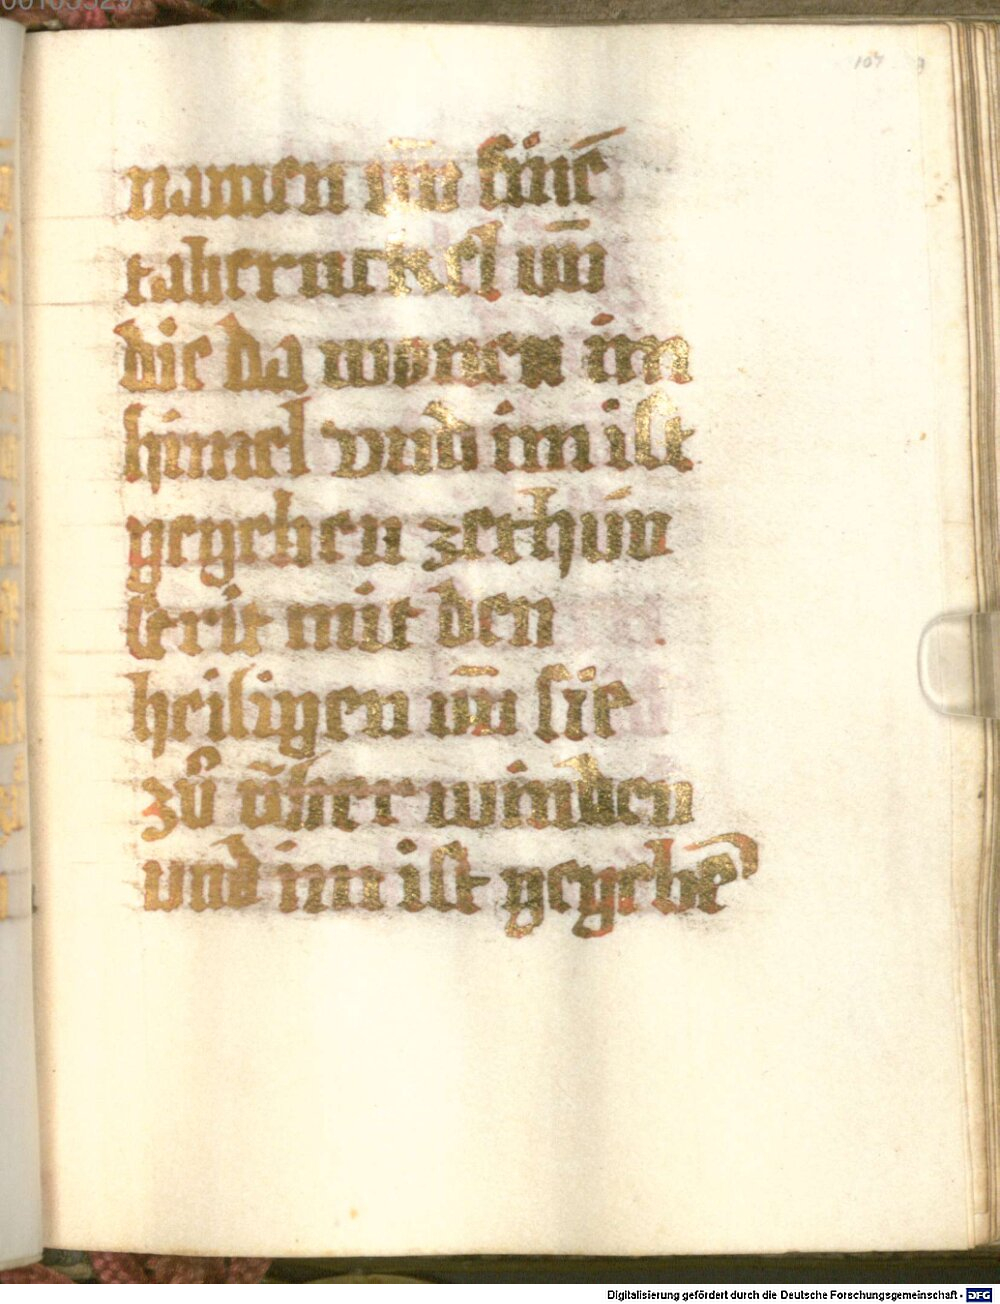 107
namen vn̄ sinē
tabernackel vn̄
die da wonen im
himel vnd im ist
gegeben zethūn
strit mit den
heiligen vn̄ sie
zů v̈ber winden
vnd im ist gegebē
Digitalisierung gefördert durch die Deutsche Forschungsgemeinschaft - DFG